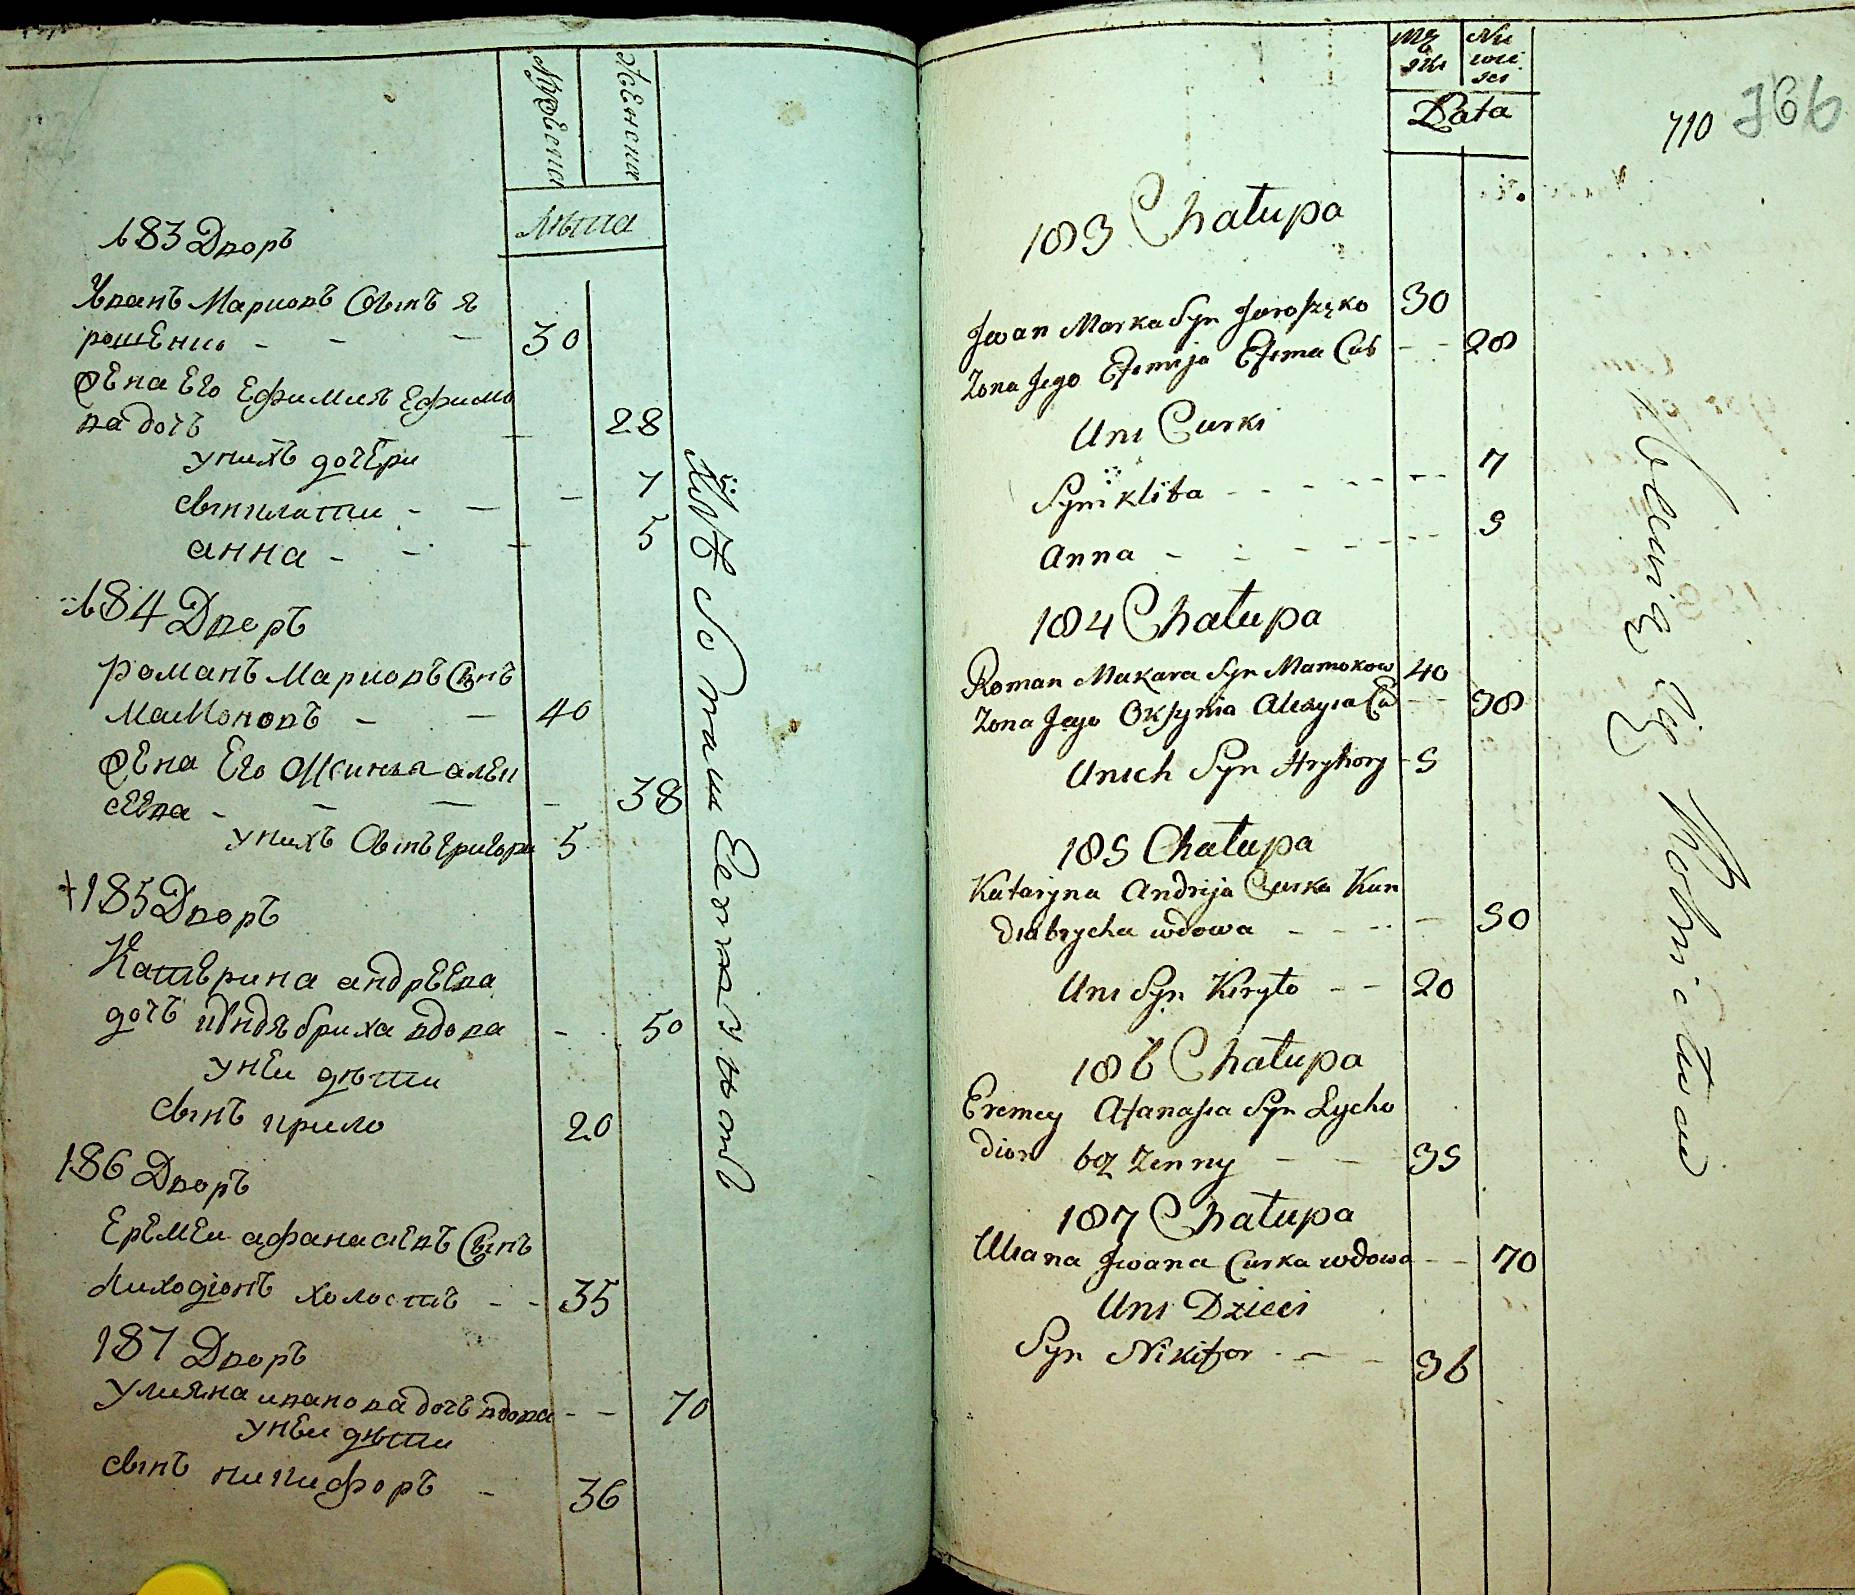 Мужески
Женски
Лѣта
183 Дворъ
Иванъ Марковъ Сынъ я
рошенко - - - 30
Жена Его Ефимия Ефимо
ва дочъ - 28
у нихъ дочери
Свинклати - - - 7
анна - - - 5
184 Дворъ
романъ Марковъ Сынъ
Мамоновъ - - 40
Жена Его Оксинья алек
сеева - - - - 38
у нихъ Сынъ григори 5
+185 Дворъ
Катерина андреева
дочъ кундябриха вдова - 50
у неи дѣти
Сынъ кирило 20
186 Дворъ
Еремеи афанасиевъ Сынъ
Лиходіонъ холостъ - - 35
187 Дворъ
улияна иванова дочъ вдова - - 70
у неи дѣти
Сынъ никифоръ - 36
Mę
skı
Nie
wie
scı
Lata
710 366
183 Chałupa
Jwan Marka Syn Jaroszęko 30
Zona Jego Efemija Efima Cur - - 28
Uni Curki
Syniklita - - - - - - - 7
Anna - - - - - - - 5
184 Chałupa
Roman Makara Syn Mamokow 40
Zona Jego Oksynia Alexyia Cu - - 38
Unich Syn Hryhory - 5
185 Chałupa
Kataryna Andrija Curka Kun
diabrycha wdowa - - - - - 50
Uni Syn Kiryło - - 20
186 Chałupa
Eremey Afanasia Syn Lycho
dion bez Zenny - - 35
187 Chałupa
Uliana Jwana Curka wdowa - - 70
Uni Dzieci
Syn Nikifor - - - 36